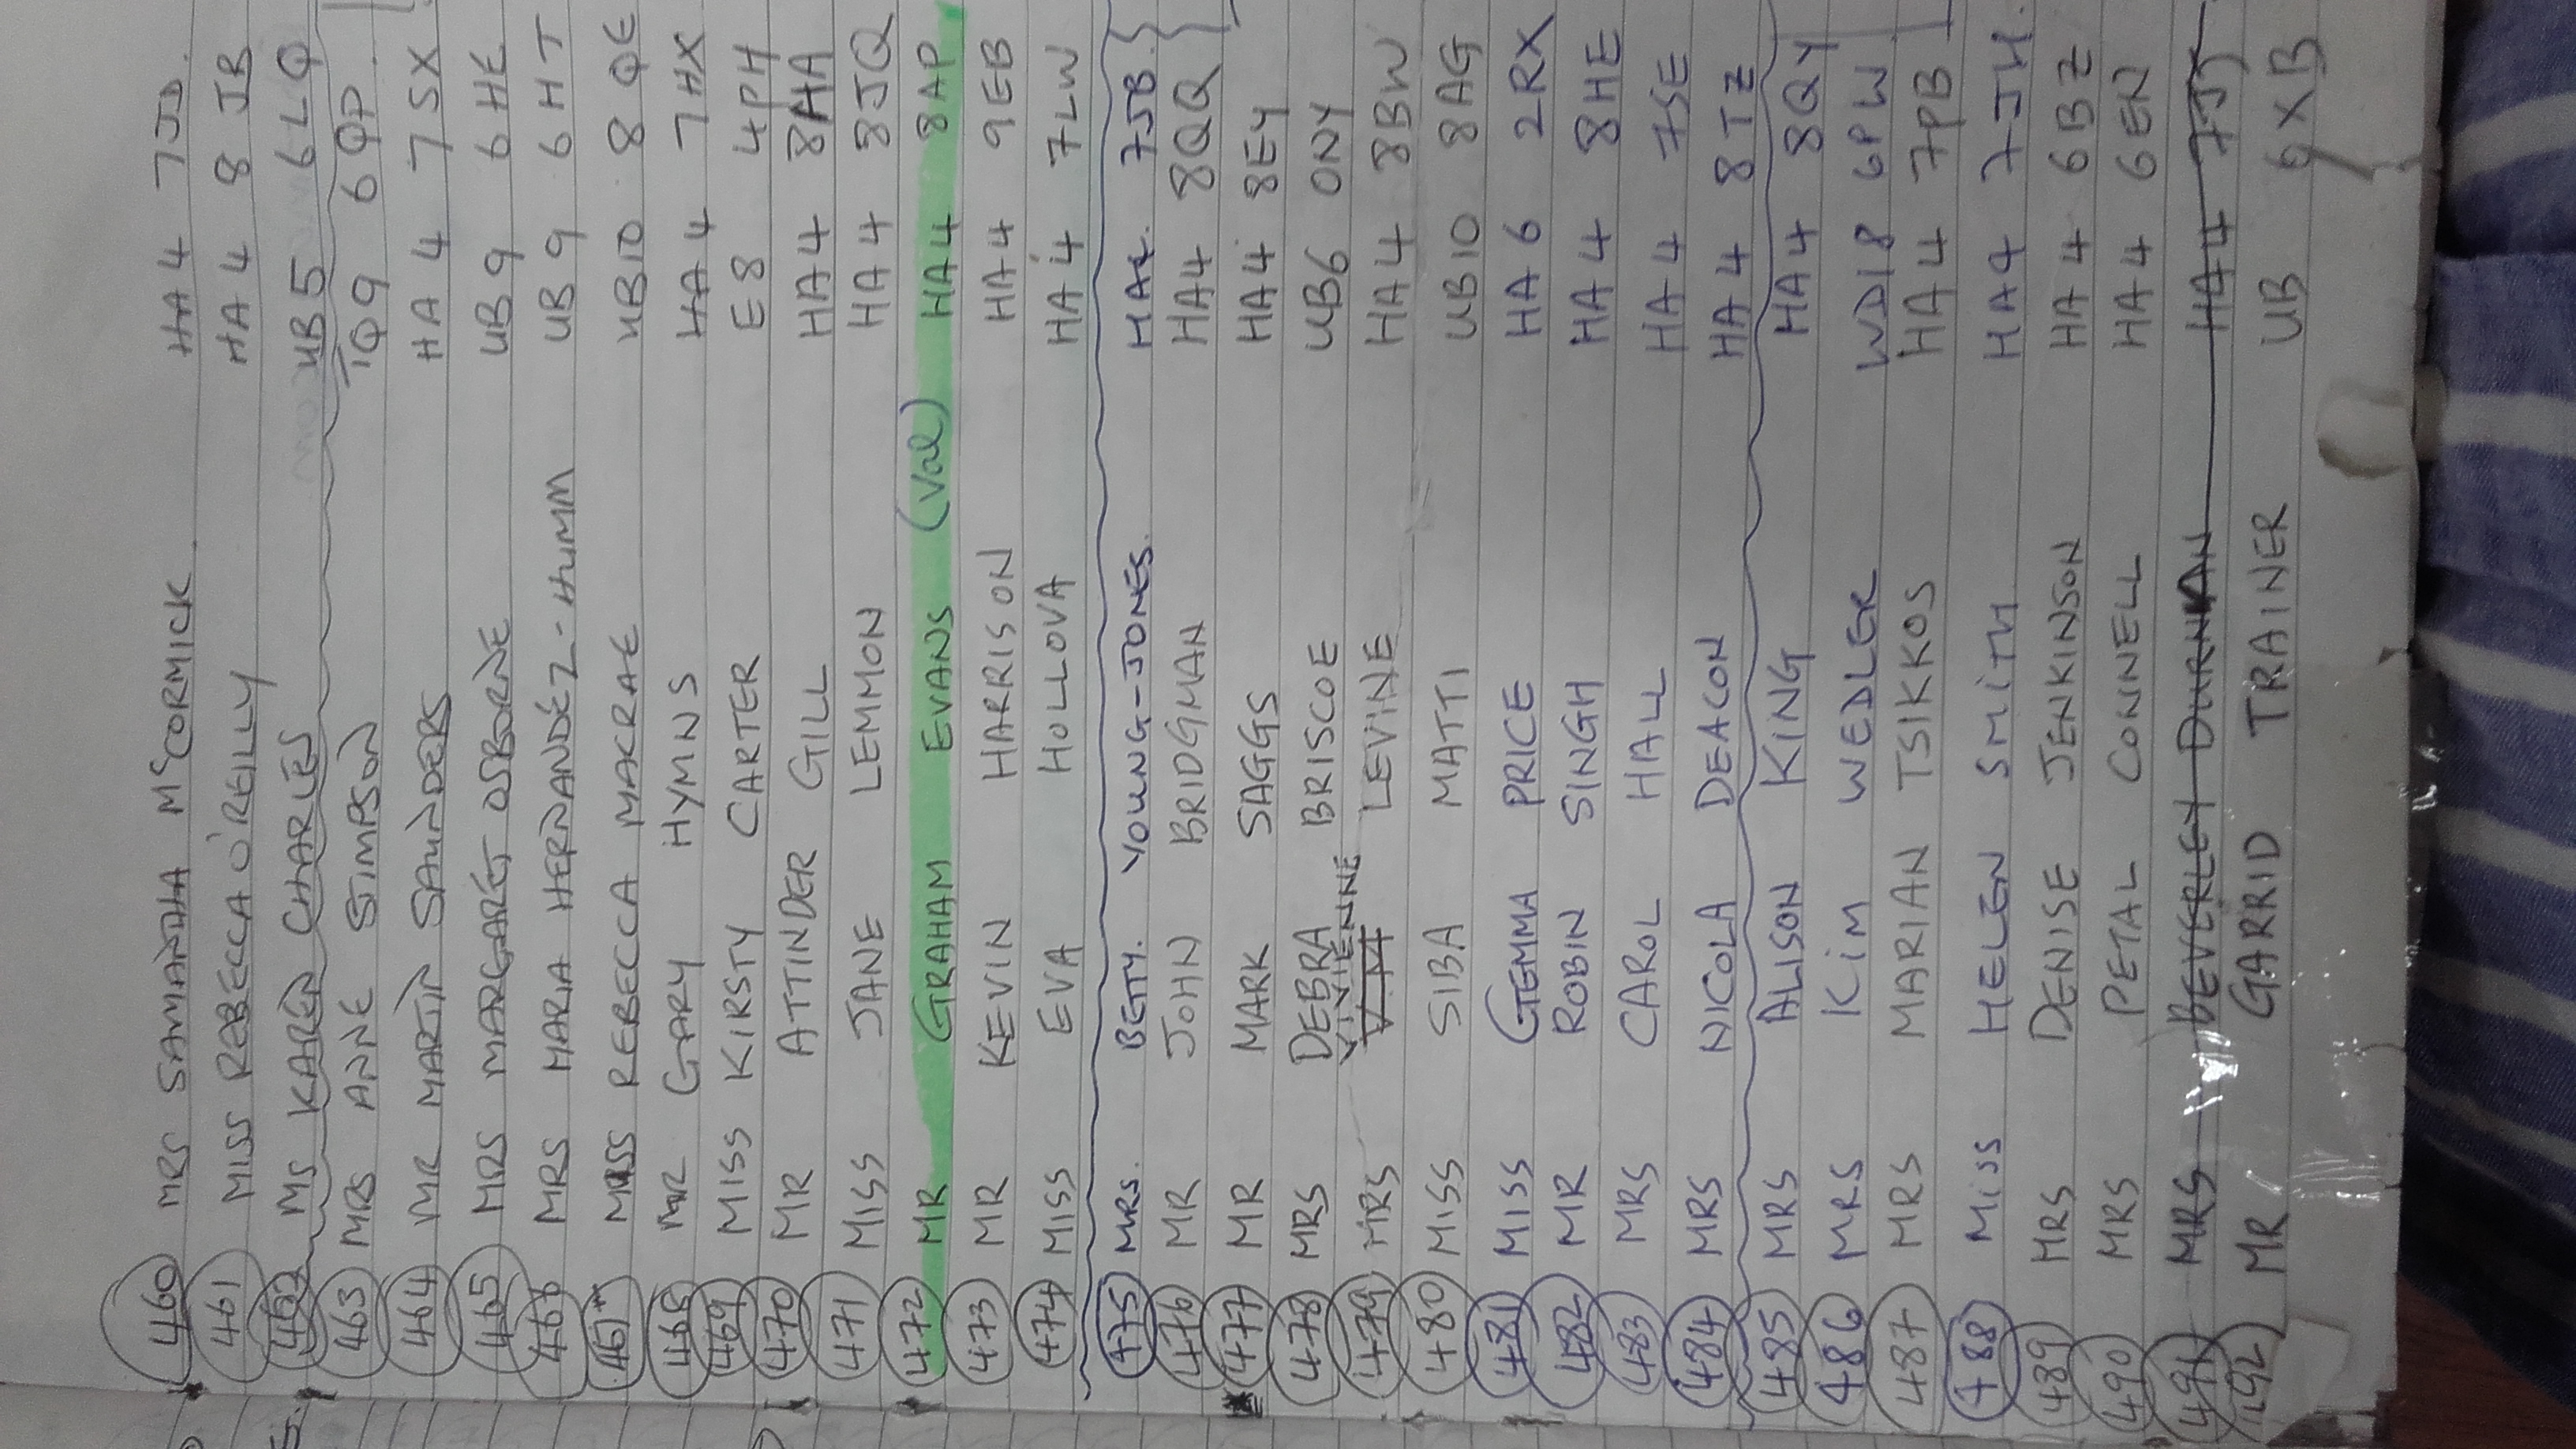 460 MRS SAMANTHA McCORMICK HA4 7JD.
461 MISS REBECCA O'REILLY HA4 8JB
462 MS KAREN CHARLES UB5 6LQ
463 MRS ANNE STIMPSON TQ9 6QP.
464 MR MARTIN SAUNDERS HA4 7SX
465 MRS MARGARET OSBORNE UB9 6HE
466 MRS MARIA HERNANDEZ-HUMM UB9 6HT
467 MISS REBECCA MACRAE UB10 8QE
468 MR GARY HYMNS HA4 7HX
469 MISS KIRSTY CARTER E8 4PH
470 MR ATTINDER GILL HA4 8HA
471 MISS JANE LEMMON HA4 8JQ
472 MR GRAHAM EVANS (Val) HA4 8AP
473 MR KEVIN HARRISON HA4 9EB
474 MISS EVA HOLLOVA HA4 7LW
475 MRS. BETTY. YOUNG-JONES. HA4. 7JB.
476 MR JOHN BRIDGMAN HA4 8QQ
477 MR MARK SAGGS HA4 8EY
478 MRS DEBRA BRISCOE UB6 0NY
479 MRS VIVIENNE V.M LEVINE HA4 8BW
480 MISS SIBA MATTI UB10 8AG
481 MISS GEMMA PRICE HA6 2RX
482 MR ROBIN SINGH HA4 8HE
483 MRS CAROL HALL HA4 7SE
484 MRS NICOLA DEACON HA4 8TZ
485 MRS ALISON KING HA4 8QY
486 MRS KiM WEDLER WD18 6PW
487 MRS MARIAN TSIKKOS HA4 7PB
488 MiSS HELEN SMiTH HA4 7JH.
489 MRS DENISE JENKINSON HA4 6BZ
490 MRS PETAL CONNELL HA4 6EN
491 MRS BEVERLEY DURNIAN HA4 7JJ
492 MR GARRID TRAINER UB 6XB